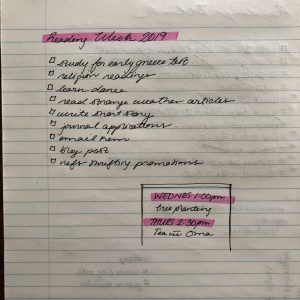 Reading Week 2019
study for early greece test
religion readings
learn dance
read strange weather articles
write short story
journal applications
email Kem
blog post
thrifty promotions
WEDNES 1:00pm
tree planting
THURS 2:30pm
Tea w Oma